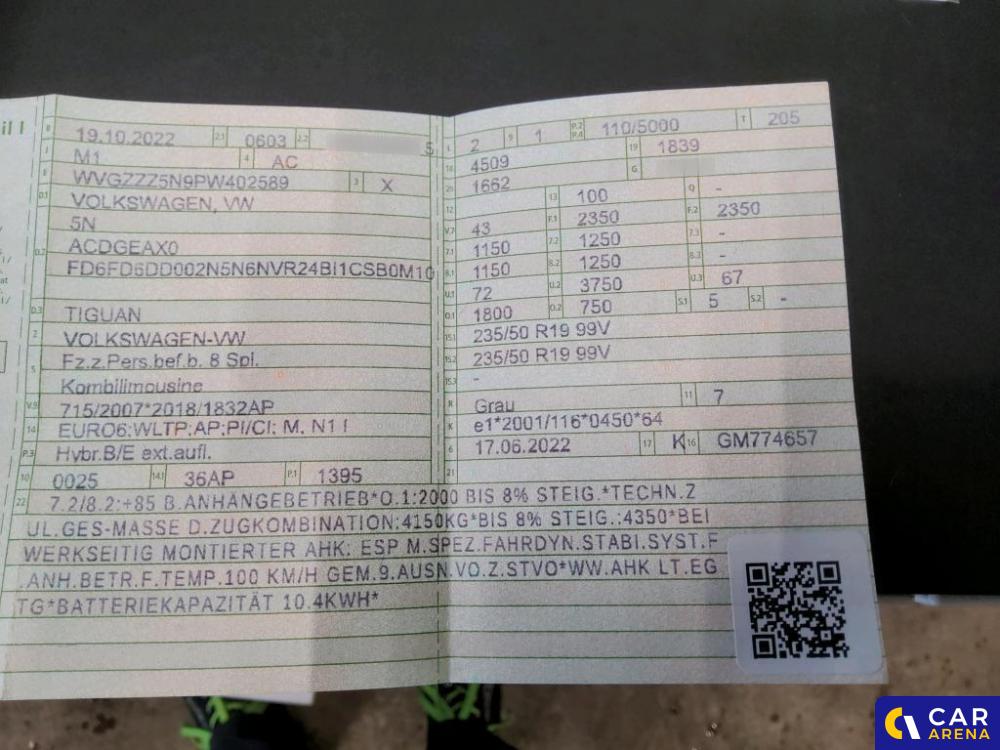 il I
B 19.10.2022 2.1 0603 2.2 5
J M1 4 AC
E WVGZZZ5N9PW402589 3 X
D.1 VOLKSWAGEN, VW
5N
D.2 ACDGEAX0
FD6FD6DD002N5N6NVR24BI1CSB0M10
D.3 TIGUAN
2 VOLKSWAGEN-VW
5 Fz.z.Pers.bef.b. 8 Spl.
Kombilimousine
V.9 715/2007*2018/1832AP
14 EURO6;WLTP;AP;PI/CI; M, N1 I
P.3 Hybr.B/E ext.aufl.
10 0025 14.1 36AP P.1 1395
L 2 9 1 P.2 P.4 110/5000 T 205
18 4509 19 1839
20 1662 G
12 13 100 Q -
V.7 43 F.1 2350 F.2 2350
7.1 1150 7.2 1250 7.3 -
8.1 1150 8.2 1250 8.3 -
U.1 72 U.2 3750 U.3 67
O.1 1800 O.2 750 S.1 5 S.2 -
15.1 235/50 R19 99V
15.2 235/50 R19 99V
15.3 -
R Grau 11 7
K e1*2001/116*0450*64
6 17.06.2022 17 K 16 GM774657
21
22 7.2/8.2:+85 B.ANHÄNGEBETRIEB*O.1:2000 BIS 8% STEIG.*TECHN.Z
UL.GES-MASSE D.ZUGKOMBINATION:4150KG*BIS 8% STEIG.:4350*BEI
WERKSEITIG MONTIERTER AHK: ESP M.SPEZ.FAHRDYN.STABI.SYST.F
.ANH.BETR.F.TEMP.100 KM/H GEM.9.AUSN.VO.Z.STVO*WW.AHK LT.EG
TG*BATTERIEKAPAZITÄT 10.4KWH*
CAR
ARENA